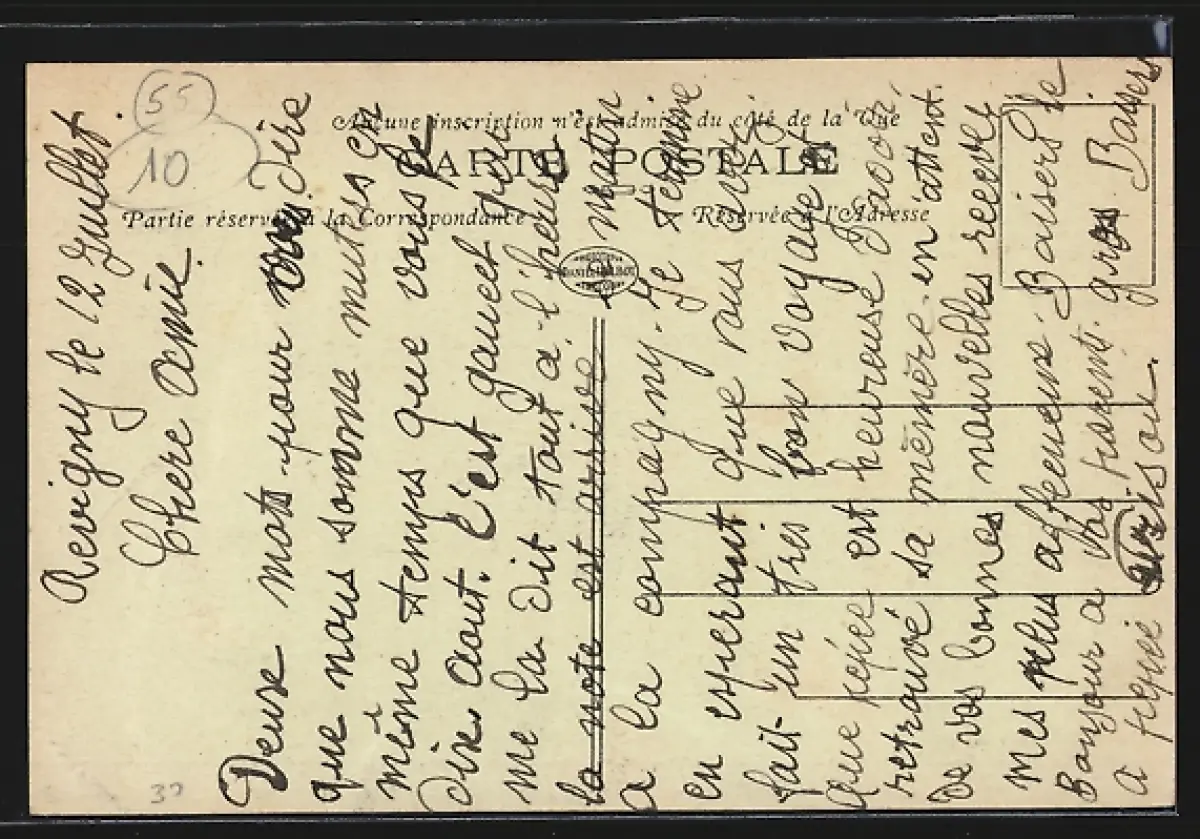 Aucune inscription n'est admise du côté de la Vue
CARTE POSTALE
Partie réservée à la Correspondance
Réservée à l'Adresse
55
10
Revigny le 12 Juillet.
Chere amie.
Deux mots pour vous dire
que nous somme mutées
même temps que vous le
dix aout. C'est gauchet qui
me la dit tout a l'heure
la note est arrivée matin
a la compagny. Je termine
en esperant que vous avez
fait un tres bon voyage et
que pépée est heureuse d'avoir
retrouvé sa mémère. en attent.
De vos bonnes nouvelles recevez
mes plus affteueux. Baisers de
Bonjour a vos parents. gros Baisers
a pepée
32